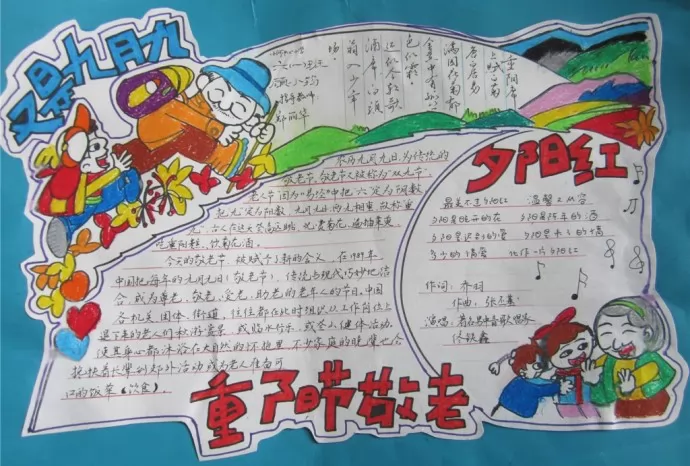 又是九月九
六(一)班
指导教师
重阳席
上赋白菊
白居易
满园花菊郁
金黄中有孤
丛色似霜
还似今朝歌
酒席白头
翁入少年
场
农历九月九日,为传统的
敬老节,敬老节又被称为"双九节",
老人节因为《易经》中把"六"定为阴数,
把"九"定为阳数,九月九日,两九相重,故称重
古人在这天登高远眺、观赏菊花、遍插茱萸、
吃重阳糕、饮菊花酒。
今天的敬老节,被赋予了新的含义,在1989年,
中国把每年的九月九日(敬老节),传统与现代巧妙地结
合,成为尊老、敬老、爱老、助老的老年人的节日。中国
各机关、团体、街道,往往都在此时组织从工作岗位上
退下来的老人们秋游赏景,或临水玩乐,或登山健体活动,
使其身心都沐浴在大自然的怀抱里,不少家庭的晚辈也会
搀扶着长辈到郊外活动或为老人准备可
口的饭菜(饮食)。
夕阳红
最美不过夕阳红 温馨又从容
夕阳是晚开的花 夕阳是陈年的酒
夕阳是迟到的爱 夕阳是未了的情
多少的情爱 化作一片夕阳红
作词:乔羽
作曲:张丕基
演唱:
佟铁鑫
重阳节敬老